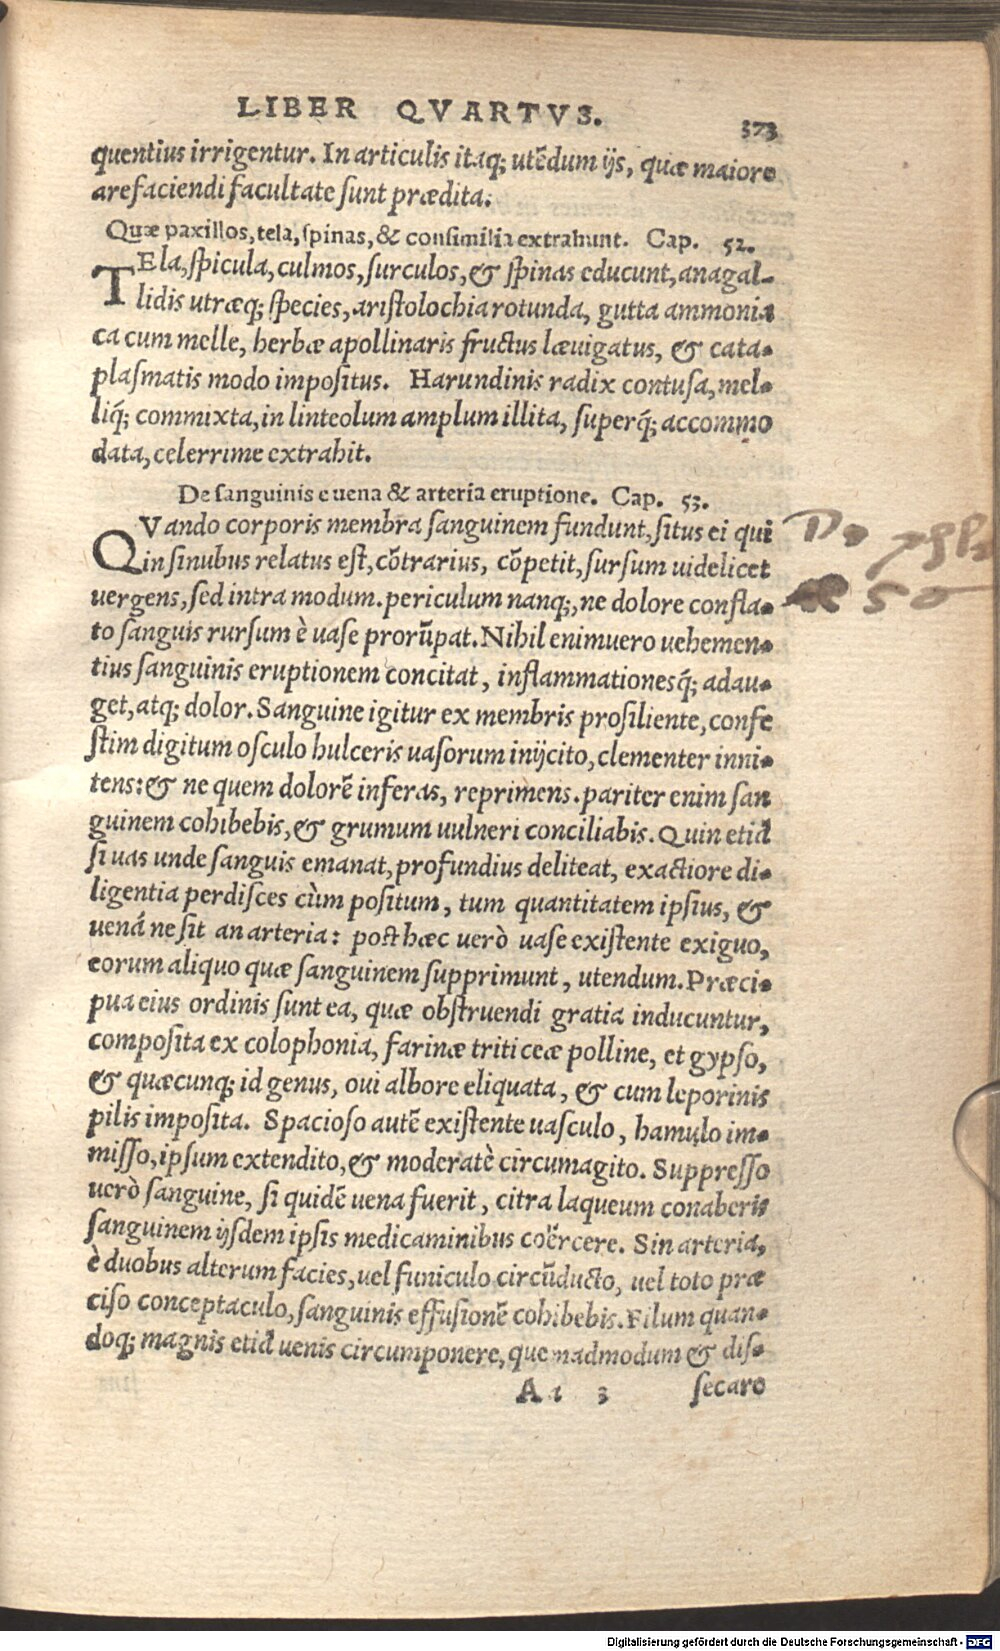 LIBER QVARTVS.
373
quentius irrigentur. In articulis itaq; utẽdum ijs, quæ maiore
arefaciendi facultate sunt prædita.
Quæ paxillos, tela, spinas, & consimilia extrahunt. Cap. 52.
TEla, spicula, culmos, surculos, & spinas educunt, anagal-
lidis utræq; species, aristolochia rotunda, gutta ammonia
ca cum melle, herbæ apollinaris fructus læuigatus, & cata-
plasmatis modo impositus. Harundinis radix contusa, mel-
liq́; commixta, in linteolum amplum illita, superq́; accommo
data, celerrime extrahit.
De sanguinis e uena & arteria eruptione. Cap. 53.
QVando corporis membra sanguinem fundunt, situs ei qui
in sinubus relatus est, cõtrarius, cõpetit, sursum uidelicet
uergens, sed intra modum. periculum nanq;, ne dolore confla-
to sanguis rursum è uase prorũpat. Nihil enimuero uehemen-
tius sanguinis eruptionem concitat, inflammationesq́; adau-
get, atq; dolor. Sanguine igitur ex membris prosiliente, confe
stim digitum osculo hulceris uasorum inijcito, clementer inni-
tens: & ne quem dolorẽ inferas, reprimens. pariter enim san
guinem cohibebis, & grumum uulneri conciliabis. Quin etiã
si uas unde sanguis emanat, profundius deliteat, exactiore di-
ligentia perdisces cùm positum, tum quantitatem ipsius, &
uenã ne sit an arteria: post hæc uerò uase existente exiguo,
eorum aliquo quæ sanguinem supprimunt, utendum. Præci-
pua eius ordinis sunt ea, quæ obstruendi gratia inducuntur,
composita ex colophonia, farinæ triticeæ polline, et gypso,
& quæcunq; id genus, oui albore eliquata, & cum leporinis
pilis imposita. Spacioso autẽ existente uasculo, hamulo im-
misso, ipsum extendito, & moderatè circumagito. Suppresso
uerò sanguine, si quidẽ uena fuerit, citra laqueum conaberis
sanguinem ijsdem ipsis medicaminibus coërcere. Sin arteria,
è duobus alterum facies, uel funiculo circũducto, uel toto præ
ciso conceptaculo, sanguinis effusionẽ cohibebis. Filum quan-
doq; magnis etiã uenis circumponere, quemadmodum & dis-
secare
50
Digitalisierung gefördert durch die Deutsche Forschungsgemeinschaft - DFG